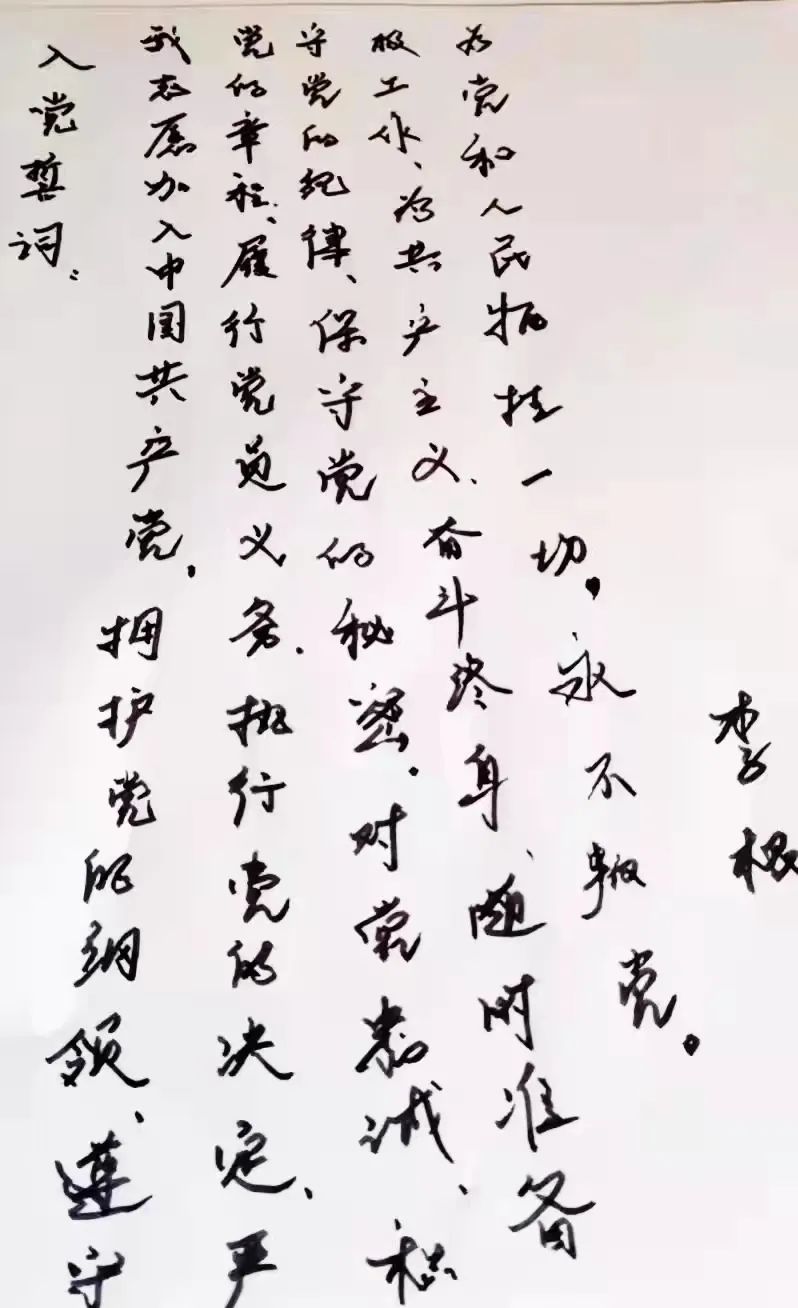 入党誓词：
我志愿加入中国共产党，拥护党的纲领、遵守
党的章程、履行党员义务，执行党的决定、严
守党的纪律、保守党的秘密，对党忠诚、积
极工作、为共产主义、奋斗终身、随时准备
为党和人民牺牲一切，永不叛党。
李根